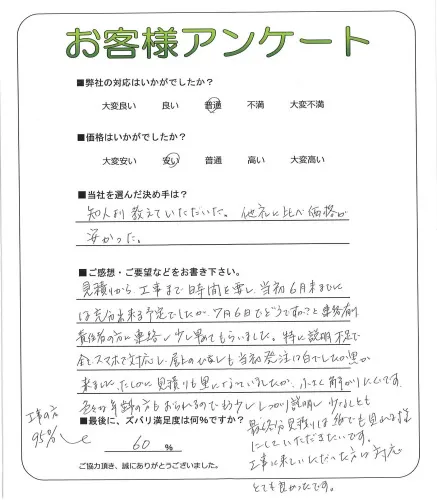 お客様アンケート
■弊社の対応はいかがでしたか?
大変良い 良い 普通 不満 大変不満
■価格はいかがでしたか?
大変安い 安い 普通 高い 大変高い
■当社を選んだ決め手は?
知人より教えていただいた。他社に比べ価格が
安かった。
■ご感想・ご要望などをお書き下さい。
見積りから工事まで時間を要し、当初6月末までに
は充分出来る予定でしたが、7月6日でどうですかと連絡有り
責任者の方に連絡し少し早めてもらいました。特に説明不足で
全てスマホで対応し、屋上の 当初発注は白でしたが黒が
来ました。たしかに見積りも黒になっていましたが、小さく解かりにくいです。
色々な年齢の方もおられるのでもう少ししっかり説明し、少なくとも
■最後に、ズバリ満足度は何%ですか?
最終見積りは紙でも見れる様
にしていただきたいです。
工事の方
95%
60 %
工事に来ていただいた方は対応
とても良かったです。
ご協力頂き、誠にありがとうございました。